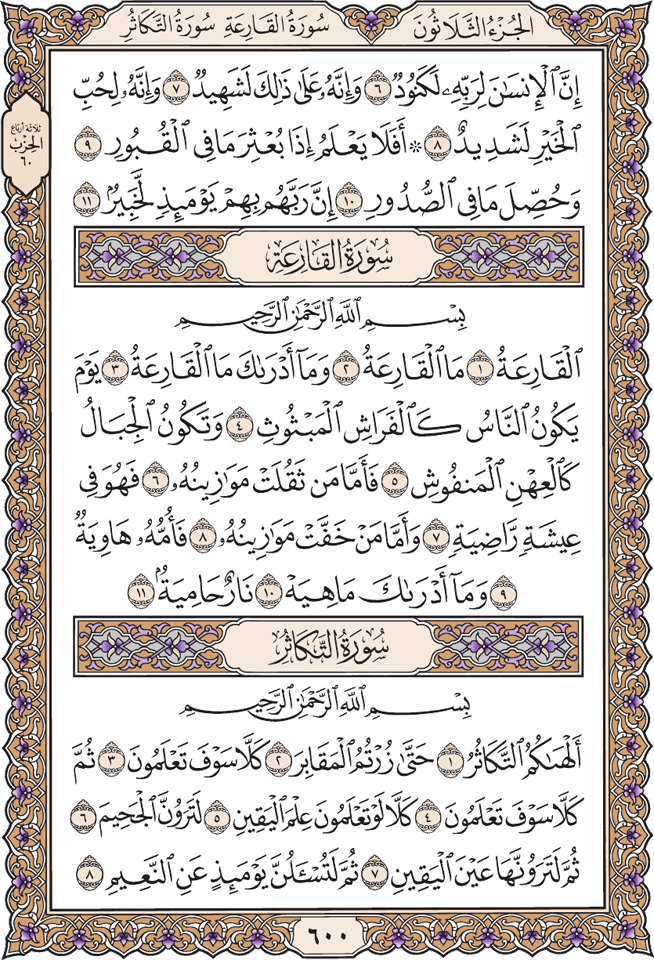 الجُزْءُ الثَّلَاثُونَ سُورَةُ القَارِعَةِ سُورَةُ التَّكَاثُرِ
ثلاثة أرباع
الحِزْب
٦٠
إِنَّ ٱلْإِنسَٰنَ لِرَبِّهِۦ لَكَنُودٌ ٦ وَإِنَّهُۥ عَلَىٰ ذَٰلِكَ لَشَهِيدٌ ٧ وَإِنَّهُۥ لِحُبِّ
ٱلْخَيْرِ لَشَدِيدٌ ٨ ۞ أَفَلَا يَعْلَمُ إِذَا بُعْثِرَ مَا فِي ٱلْقُبُورِ ٩
وَحُصِّلَ مَا فِي ٱلصُّدُورِ ١٠ إِنَّ رَبَّهُم بِهِمْ يَوْمَئِذٍ لَّخَبِيرٌۢ ١١
سُورَةُ القَارِعَةِ
بِسْمِ ٱللَّهِ ٱلرَّحْمَٰنِ ٱلرَّحِيمِ
ٱلْقَارِعَةُ ١ مَا ٱلْقَارِعَةُ ٢ وَمَآ أَدْرَىٰكَ مَا ٱلْقَارِعَةُ ٣ يَوْمَ
يَكُونُ ٱلنَّاسُ كَٱلْفَرَاشِ ٱلْمَبْثُوثِ ٤ وَتَكُونُ ٱلْجِبَالُ
كَٱلْعِهْنِ ٱلْمَنفُوشِ ٥ فَأَمَّا مَن ثَقُلَتْ مَوَٰزِينُهُۥ ٦ فَهُوَ فِي
عِيشَةٍ رَّاضِيَةٍ ٧ وَأَمَّا مَنْ خَفَّتْ مَوَٰزِينُهُۥ ٨ فَأُمُّهُۥ هَاوِيَةٌ
٩ وَمَآ أَدْرَىٰكَ مَا هِيَهْ ١٠ نَارٌ حَامِيَةٌۢ ١١
سُورَةُ التَّكَاثُرِ
بِسْمِ ٱللَّهِ ٱلرَّحْمَٰنِ ٱلرَّحِيمِ
أَلْهَىٰكُمُ ٱلتَّكَاثُرُ ١ حَتَّىٰ زُرْتُمُ ٱلْمَقَابِرَ ٢ كَلَّا سَوْفَ تَعْلَمُونَ ٣ ثُمَّ
كَلَّا سَوْفَ تَعْلَمُونَ ٤ كَلَّا لَوْ تَعْلَمُونَ عِلْمَ ٱلْيَقِينِ ٥ لَتَرَوُنَّ ٱلْجَحِيمَ ٦
ثُمَّ لَتَرَوُنَّهَا عَيْنَ ٱلْيَقِينِ ٧ ثُمَّ لَتُسْـَٔلُنَّ يَوْمَئِذٍ عَنِ ٱلنَّعِيمِ ٨
٦٠٠